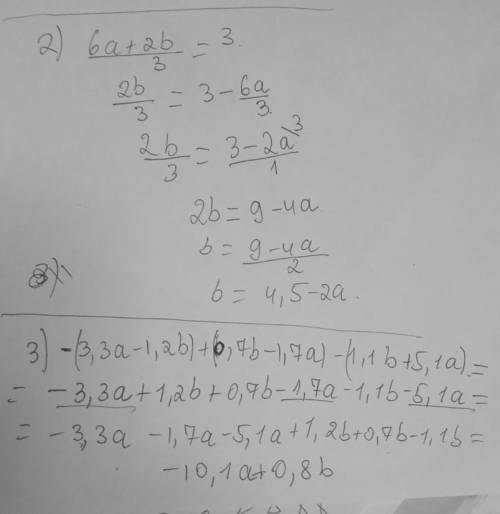 2) (6a+2b)/3 = 3.
2b/3 = 3 - 6a/3
2b/3 = (3-2a\3)/1
2b = 9-4a
b = (9-4a)/2
b = 4,5-2a.
3) -(3,3a-1,2b)+(0,7b-1,7a)-(1,1b+5,1a)=
= -3,3a+1,2b+0,7b-1,7a-1,1b-5,1a=
= -3,3a -1,7a-5,1a+1,2b+0,7b-1,1b=
-10,1a+0,8b